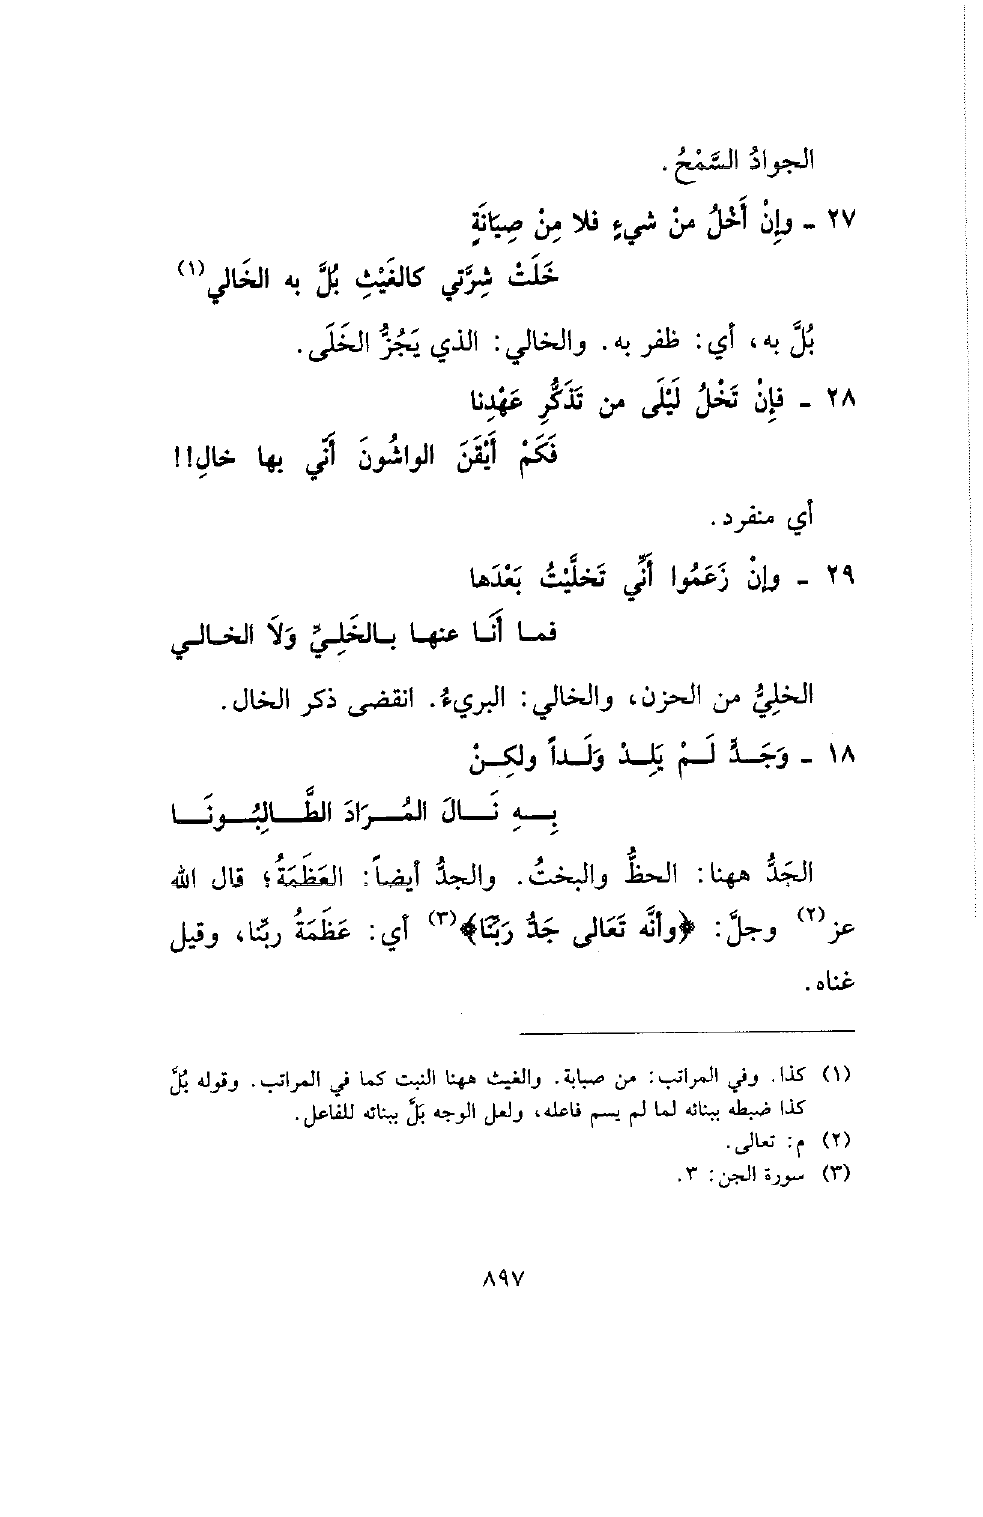 الجوادُ السَّمْحُ .
٢٧ ـ وإِنْ أَخْلُ منْ شيءٍ فلا مِنْ صِيَانَةٍ
خَلَتْ شِرَّتي كالغَيْثِ بُلَّ به الخَالي(١)
بُلَّ به، أي: ظفر به. والخالي: الذي يَجُزُّ الخَلَى.
٢٨ ـ فإِنْ تَخْلُ لَيْلَى من تَذَكُّرِ عَهْدِنا
فَكَمْ أَيْقَنَ الواشُونَ أَنّي بها خالِ!!
أي منفرد.
٢٩ ـ وإنْ زَعَمُوا أَنِّي تَخلَّيْتُ بَعْدَها
فما أَنَا عنها بالخَلِيِّ وَلاَ الخالي
الخليُّ من الحزن، والخالي: البريءُ. انقضى ذكر الخال.
١٨ ـ وَجَدٍّ لَمْ يَلِدْ وَلَداً ولكِنْ
بِهِ نَالَ المُرَادَ الطَّالِبُونَا
الجَدُّ ههنا: الحظُّ والبختُ. والجدُّ أيضاً: العَظَمَةُ؛ قال الله
عز(٢) وجلَّ: ﴿وأنَّه تَعَالى جَدُّ رَبِّنَا﴾(٣) أي: عَظَمَةُ ربِّنا، وقيل
غناه.
(١) كذا. وفي المراتب: من صبابة. والغيث ههنا النبت كما في المراتب. وقوله بُلَّ
كذا ضبطه ببنائه لما لم يسم فاعله، ولعل الوجه بَلَّ ببنائه للفاعل.
(٢) م: تعالى.
(٣) سورة الجن: ٣.
٨٩٧